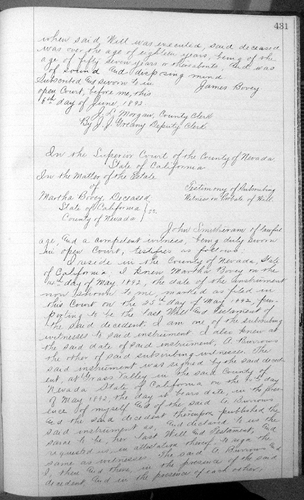 431
when said Will was executed, said deceased
was over the age of eighteen years, being of the
age of fifty seven years or thereabouts And was
of sound and disposing mind
Subscribed and sworn to in James Bovey
open Court, before me, this
6th day of June 1892
J. L. Morgan, County Clerk
By J. J. Greany Deputy Clerk
In the Superior Court of the County of Nevada
State of California
In the Matter of the Estate
of Testimony of Subscribing
Martha Bovey Deceased Witness on Probate of Will.
State of California
County of Nevada ss
John Smitheram of lawful
age, and a competent witness, being duly sworn
in open Court, testifies as follows:
I reside in the County of Nevada, State
of California. I knew Martha Bovey on the
day of May 1892, the date of the instrument
now shown to me marked as filed in
this Court on the 25th day of May 1892, pur-
porting to be the last Will and Testament of
the said decedent. I am one of the subscribing
witnesses to said instrument. I also knew at
the said date of said instrument, A Burrows
the other of said subscribing witnesses. The
said instrument was signed by the said deced-
ent, at Grass Valley in the said County of
Nevada State of California on the day
of May 1892, the day it bears date, in the pres-
ence of myself and of the said A Burrows
and the said decedent thereupon published the
said instrument as, and declared to us the
same to be, her last Will and Testament and
requested us in attestation thereof to sign the
same as witnesses. The said A Burrows and
I then and there, in the presence of the said
decedent, and in the presence of each other,